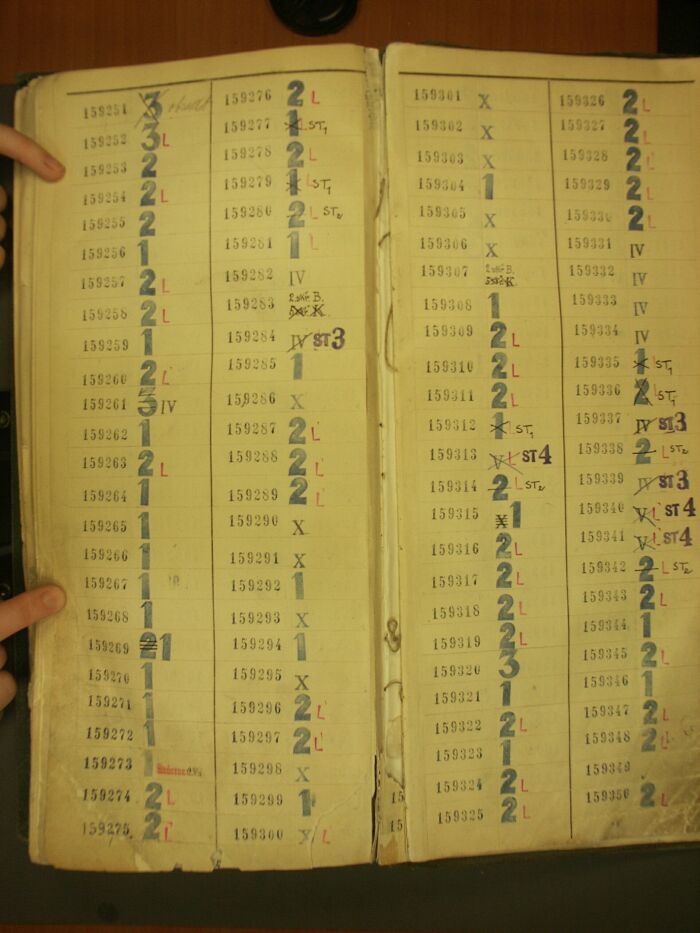 159251 3
159252 3 L
159253 2
159254 2 L
159255 2
159256 1
159257 2 L
159258 2 L
159259 1
159260 2 L
159261 3 IV
159262 1
159263 2 L
159264 1
159265 1
159266 1
159267 1
159268 1
159269 2 1
159270 1
159271 1
159272 1
159273 1
159274 2 L
159275 2 L
159276 2 L
159277 1 L ST1
159278 2 L
159279 1 L ST1
159280 2 L ST2
159281 1 L
159282 IV
159283 B. K
159284 IV ST3
159285 1
159286 X
159287 2 L
159288 2 L
159289 2 L
159290 X
159291 X
159292 1
159293 X
159294 1
159295 X
159296 2 L
159297 2 L
159298 X
159299 1
159300 X L
159301 X
159302 X
159303 X
159304 1
159305 X
159306 X
159307 B. K.
159308 1
159309 2 L
159310 2 L
159311 2 L
159312 1 L ST1
159313 V L ST4
159314 2 L ST2
159315 1
159316 2 L
159317 2 L
159318 2 L
159319 2 L
159320 3
159321 1
159322 2 L
159323 1
159324 2 L
159325 2 L
159326 2 L
159327 2 L
159328 2 L
159329 2 L
159330 2 L
159331 IV
159332 IV
159333 IV
159334 IV
159335 1 L ST1
159336 2 L ST1
159337 IV ST3
159338 2 L ST2
159339 IV ST3
159340 V L ST4
159341 V L ST4
159342 2 L ST2
159343 2 L
159344 1
159345 2 L
159346 1
159347 2 L
159348 2 L
159349
159350 2 L
15
15